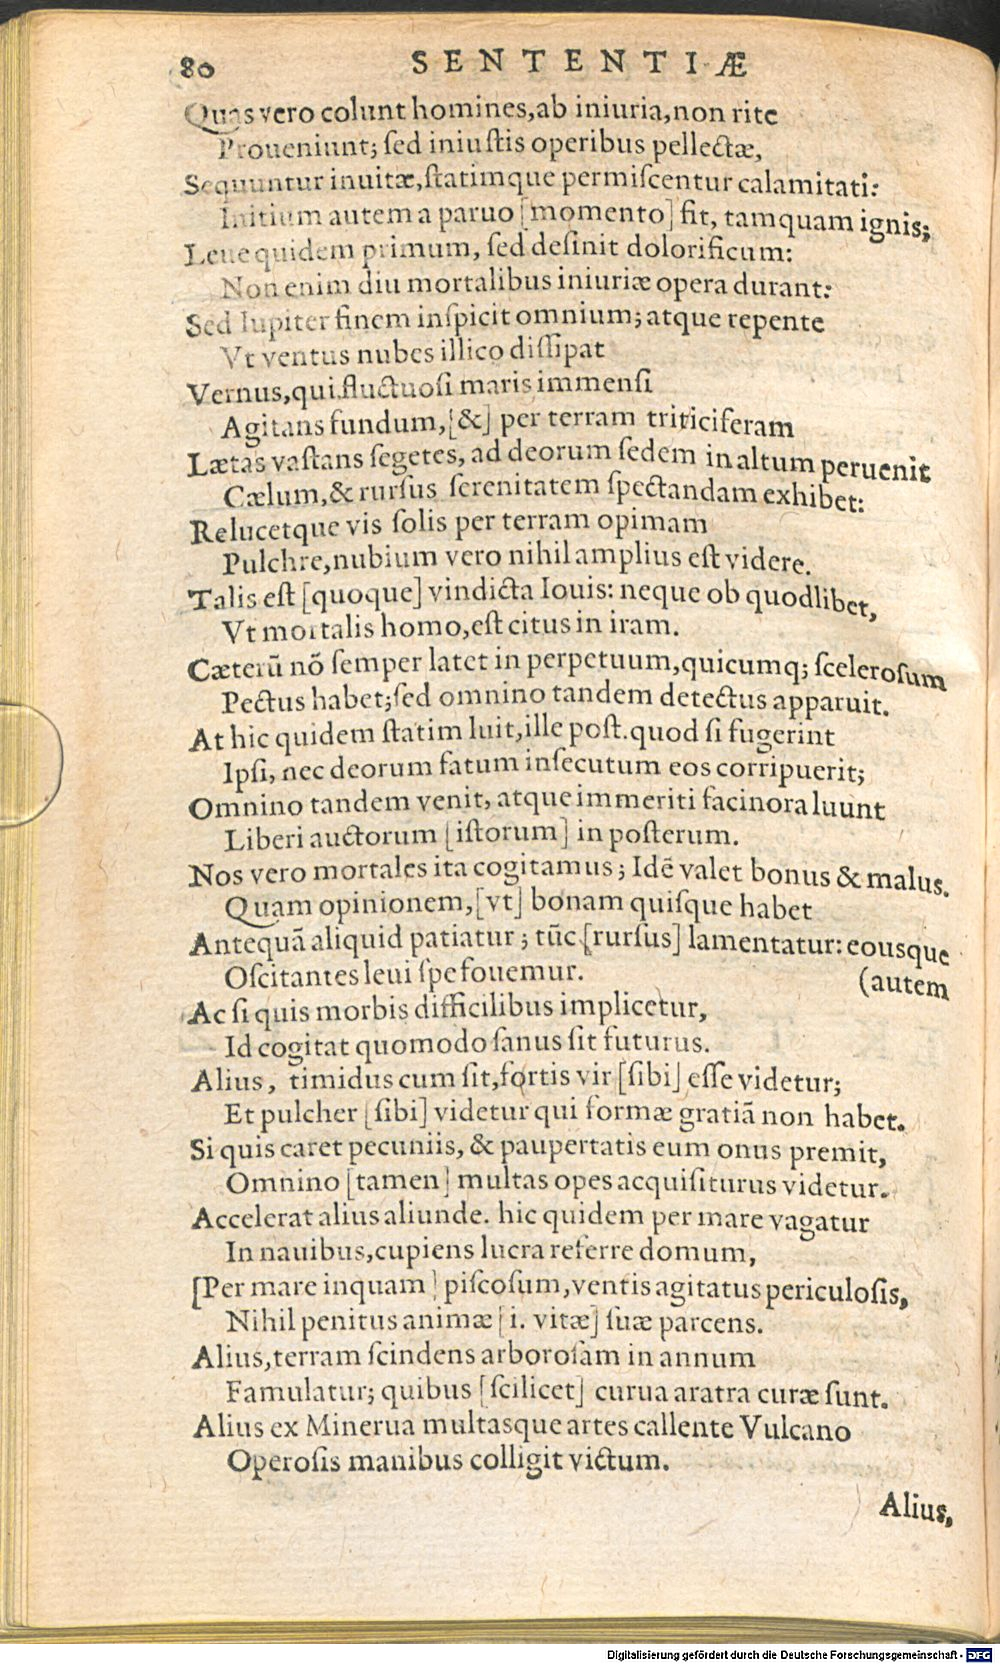 80 SENTENTIÆ
Quas vero colunt homines, ab iniuria, non rite
Proueniunt; sed iniustis operibus pellectæ,
Sequuntur inuitæ, statimque permiscentur calamitati:
Initium autem a paruo [momento] fit, tamquam ignis;
Leue quidem primum, sed desinit dolorificum:
Non enim diu mortalibus iniuriæ opera durant:
Sed Iupiter finem inspicit omnium; atque repente
Vt ventus nubes illico dissipat
Vernus, qui fluctuosi maris immensi
Agitans fundum, [&] per terram triticiferam
Lætas vastans segetes, ad deorum sedem in altum peruenit
Cælum, & rursus serenitatem spectandam exhibet:
Relucetque vis solis per terram opimam
Pulchre, nubium vero nihil amplius est videre.
Talis est [quoque] vindicta Iouis: neque ob quodlibet,
Vt mortalis homo, est citus in iram.
Cæterũ nõ semper latet in perpetuum, quicumq; scelerosum
Pectus habet; sed omnino tandem detectus apparuit.
At hic quidem statim luit, ille post. quod si fugerint
Ipsi, nec deorum fatum insecutum eos corripuerit;
Omnino tandem venit, atque immeriti facinora luunt
Liberi auctorum [istorum] in posterum.
Nos vero mortales ita cogitamus; Idẽ valet bonus & malus.
Quam opinionem, [vt] bonam quisque habet
Antequã aliquid patiatur; tũc [rursus] lamentatur: eousque
Oscitantes leui spe fouemur. (autem
Ac si quis morbis difficilibus implicetur,
Id cogitat quomodo sanus sit futurus.
Alius, timidus cum sit, fortis vir [sibi] esse videtur;
Et pulcher [sibi] videtur qui formæ gratiã non habet.
Si quis caret pecuniis, & paupertatis eum onus premit,
Omnino [tamen] multas opes acquisiturus videtur.
Accelerat alius aliunde. hic quidem per mare vagatur
In nauibus, cupiens lucra referre domum,
[Per mare inquam] piscosum, ventis agitatus periculosis,
Nihil penitus animæ [i. vitæ] suæ parcens.
Alius, terram scindens arborosam in annum
Famulatur; quibus [scilicet] curua aratra curæ sunt.
Alius ex Minerua multasque artes callente Vulcano
Operosis manibus colligit victum.
Alius,
Digitalisierung gefördert durch die Deutsche Forschungsgemeinschaft - DFG